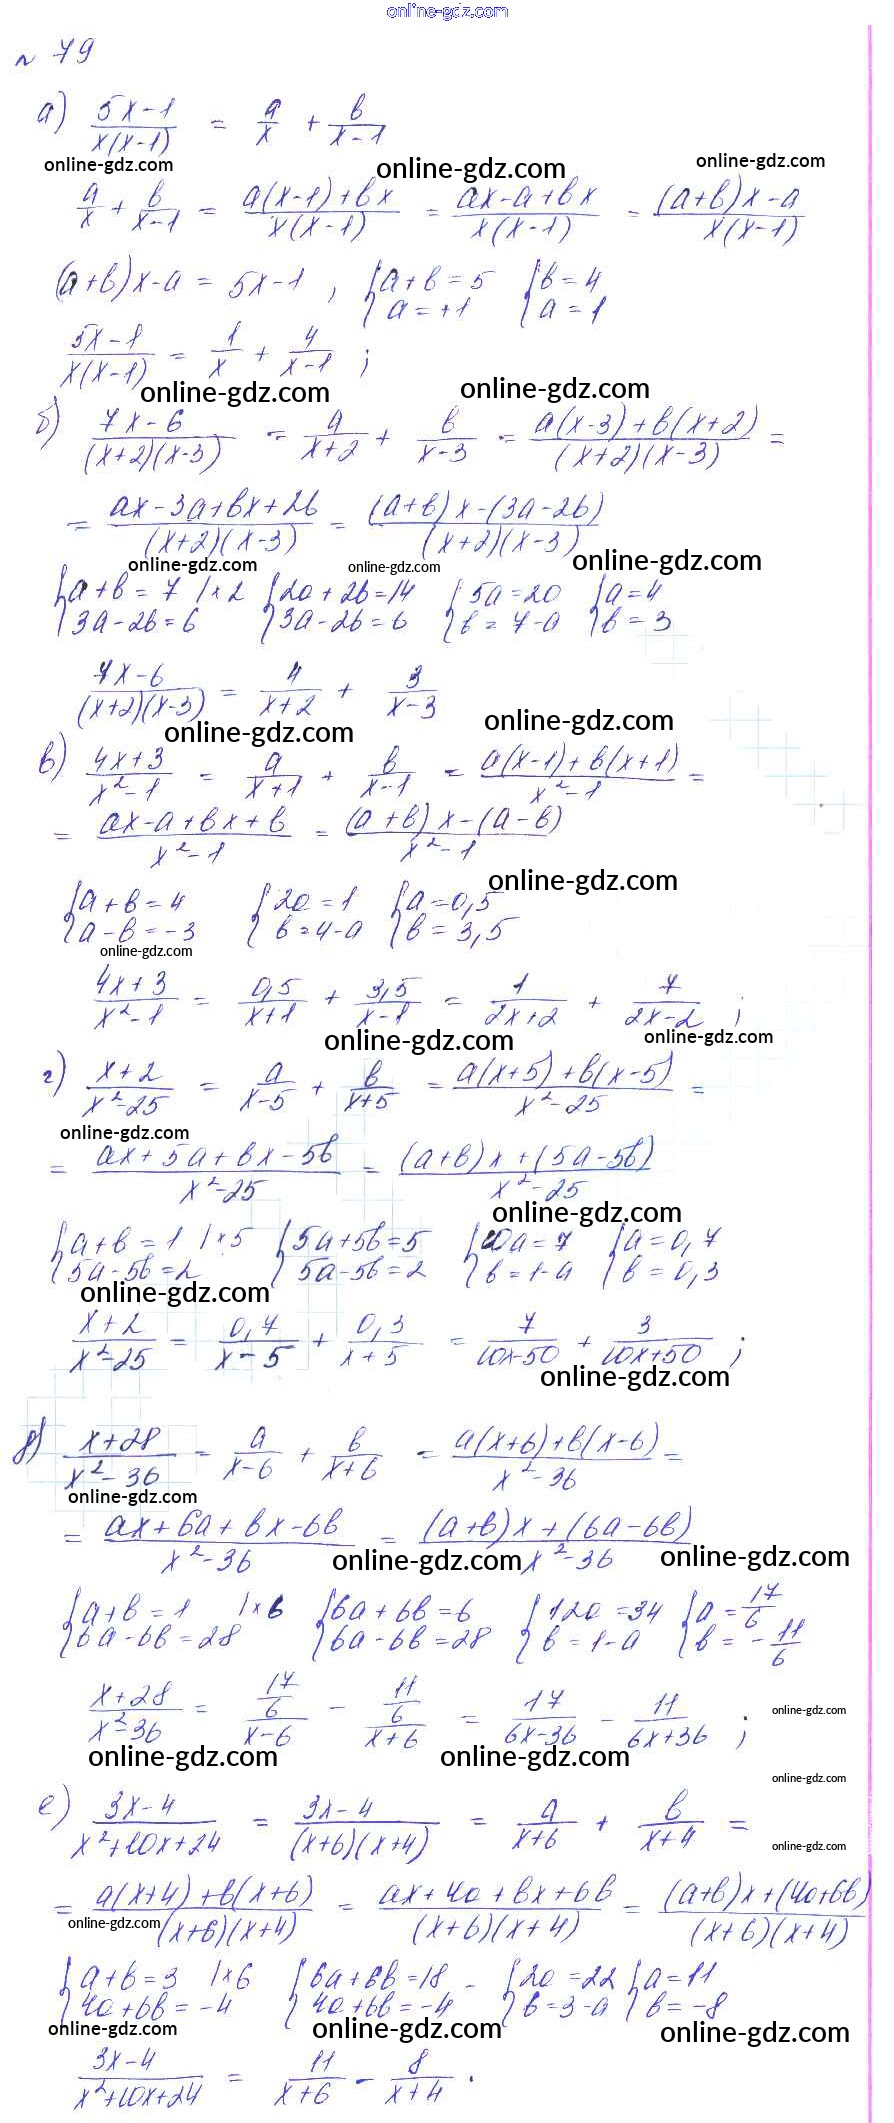 online-gdz.com
№ 79
а) (5x-1)/(x(x-1)) = a/x + b/(x-1)
online-gdz.com online-gdz.com online-gdz.com
a/x + b/(x-1) = (a(x-1)+bx)/(x(x-1)) = (ax-a+bx)/(x(x-1)) = ((a+b)x-a)/(x(x-1))
(a+b)x-a = 5x-1 , {a+b=5 {b=4
a=+1 a=1
(5x-1)/(x(x-1)) = 1/x + 4/(x-1) ;
online-gdz.com online-gdz.com
б) (7x-6)/((x+2)(x-3)) = a/(x+2) + b/(x-3) = (a(x-3)+b(x+2))/((x+2)(x-3)) =
= (ax-3a+bx+2b)/((x+2)(x-3)) = ((a+b)x-(3a-2b))/((x+2)(x-3))
online-gdz.com online-gdz.com online-gdz.com
{a+b=7 |×2 {2a+2b=14 {5a=20 {a=4
3a-2b=6 3a-2b=6 b=7-a b=3
(7x-6)/((x+2)(x-3)) = 4/(x+2) + 3/(x-3)
online-gdz.com online-gdz.com
в) (4x+3)/(x²-1) = a/(x+1) + b/(x-1) = (a(x-1)+b(x+1))/(x²-1) =
= (ax-a+bx+b)/(x²-1) = ((a+b)x-(a-b))/(x²-1)
online-gdz.com
{a+b=4 {2a=1 {a=0,5
a-b=-3 b=4-a b=3,5
online-gdz.com
(4x+3)/(x²-1) = 0,5/(x+1) + 3,5/(x-1) = 1/(2x+2) + 7/(2x-2) ;
online-gdz.com online-gdz.com
г) (x+2)/(x²-25) = a/(x-5) + b/(x+5) = (a(x+5)+b(x-5))/(x²-25) =
online-gdz.com
= (ax+5a+bx-5b)/(x²-25) = ((a+b)x+(5a-5b))/(x²-25)
online-gdz.com
{a+b=1 |×5 {5a+5b=5 {10a=7 {a=0,7
5a-5b=2 5a-5b=2 b=1-a b=0,3
online-gdz.com
(x+2)/(x²-25) = 0,7/(x-5) + 0,3/(x+5) = 7/(10x-50) + 3/(10x+50) ;
online-gdz.com
д) (x+28)/(x²-36) = a/(x-6) + b/(x+6) = (a(x+6)+b(x-6))/(x²-36) =
online-gdz.com
= (ax+6a+bx-6b)/(x²-36) = ((a+b)x+(6a-6b))/(x²-36)
online-gdz.com online-gdz.com
{a+b=1 |×6 {6a+6b=6 {12a=34 {a=17/6
6a-6b=28 6a-6b=28 b=1-a b=-11/6
(x+28)/(x²-36) = (17/6)/(x-6) - (11/6)/(x+6) = 17/(6x-36) - 11/(6x+36) ;
online-gdz.com
online-gdz.com online-gdz.com
online-gdz.com
е) (3x-4)/(x²+10x+24) = (3x-4)/((x+6)(x+4)) = a/(x+6) + b/(x+4) =
online-gdz.com
= (a(x+4)+b(x+6))/((x+6)(x+4)) = (ax+4a+bx+6b)/((x+6)(x+4)) = ((a+b)x+(4a+6b))/((x+6)(x+4))
online-gdz.com
{a+b=3 |×6 {6a+6b=18 - {2a=22 {a=11
4a+6b=-4 4a+6b=-4 b=3-a b=-8
online-gdz.com online-gdz.com online-gdz.com
(3x-4)/(x²+10x+24) = 11/(x+6) - 8/(x+4) .